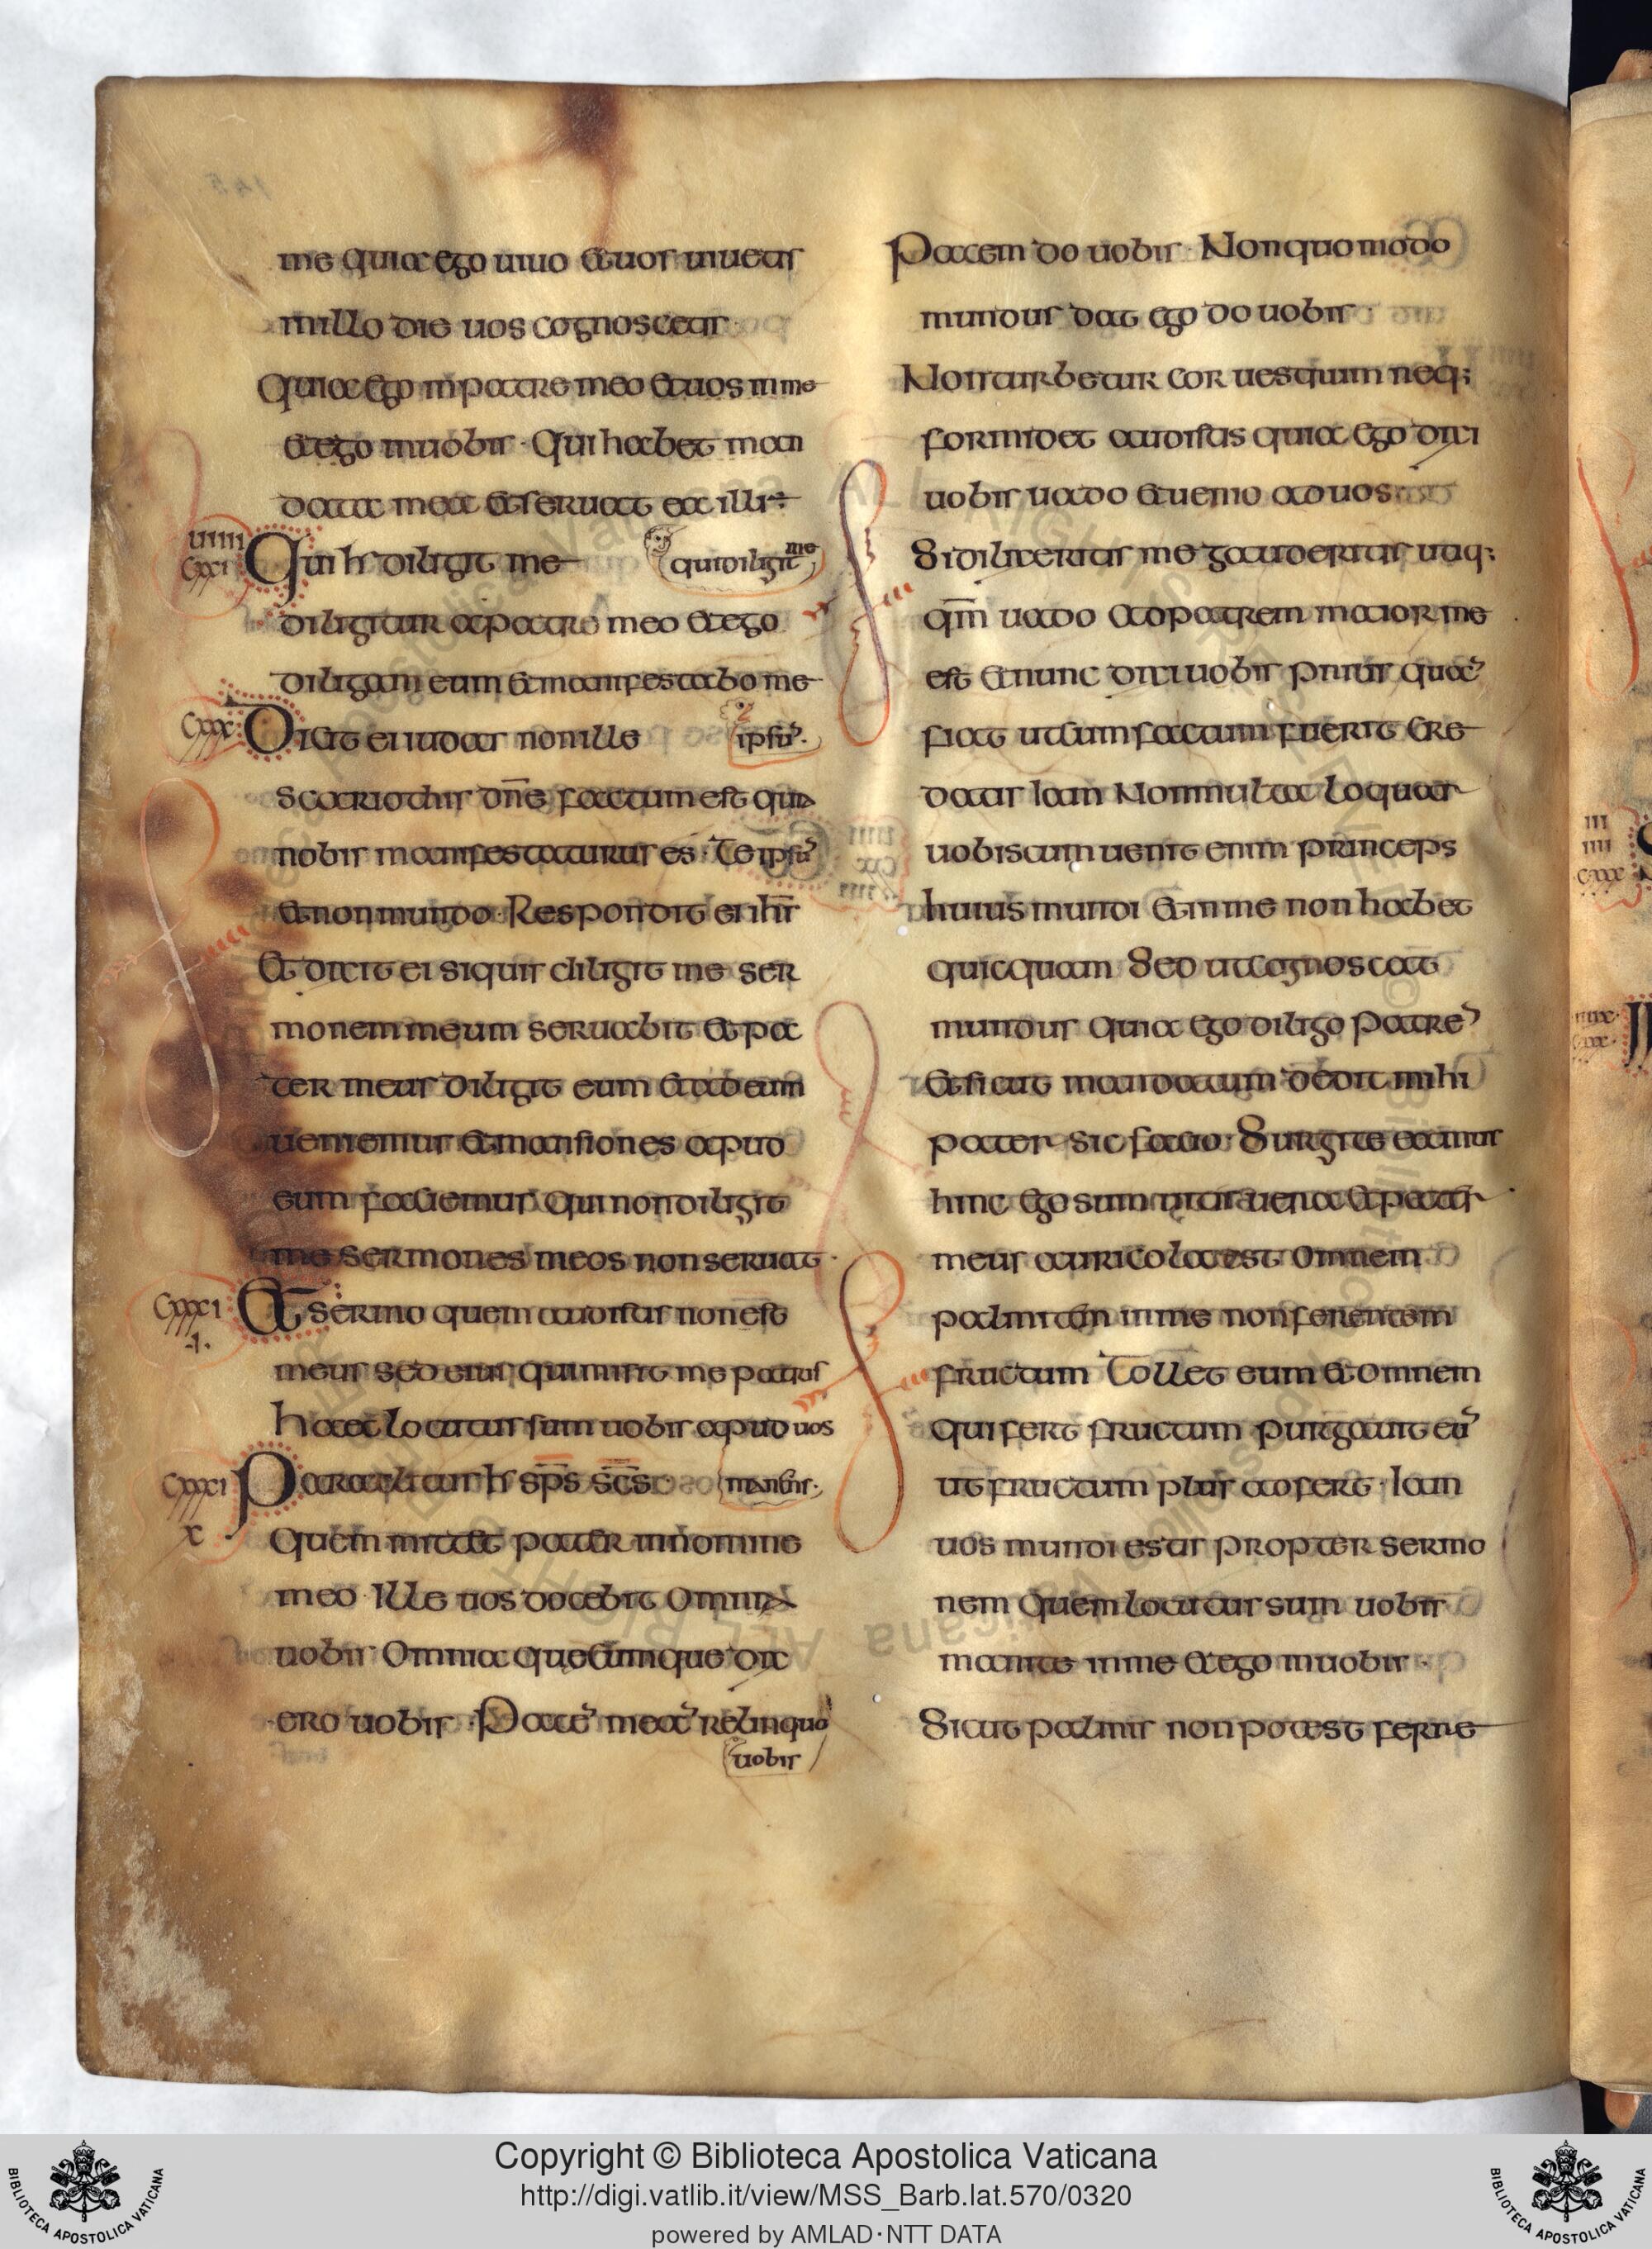 me quia ego uiuo et uos uiuetis
in illo die uos cognoscetis
Quia ego in patre meo et uos in me
et ego in uobis · Qui habet man
data mea et seruat ea ill
uiiii
cxxi
Qui h diligit me
qui diligit me
diligitur a patre meo et ego
diligam eum et manifestabo me
cxxx
Dicit ei iudas non ille
ipsū ·
scariothis dn̄e factum est quia
nobis manifestaturus es · Te ipsū
et non mundo · Respondit ei ih̄s
Et dixit ei siquis diligit me ser
monem meum seruabit et pa
ter meus diligit eum et ad eum
ueniemus et mansiones apud
eum faciemus qui non diligit
me sermones meos non seruat ·
cxxxi
Et sermo quem audistis non est
meus sed eius qui misit me patris
haec locutus sum uobis apud uos
cxxxi
x
Paraclitus h sp̄s sc̄s
manens ·
Quem mittet pater in nomine
meo · Ille uos docebit Omnia
uobis · Omnia quecumque dix
ero uobis · Pacē meā relinquo
uobis
Pacem do uobis · Non quomodo
mundus dat ego do uobis
Non turbetur cor uestrum neq;
formidet audistis quia ego dixi
uobis uado et uenio ad uos
Si dilixeritis me gauderitis utiq;
qm̄ uado ad patrem maior me
est et nunc dixi uobis prius quā
fiat ut cum factum fuerit cre
datis Iam Non multa loquar
uobiscum uenit enim princeps
huius mundi et in me non habet
quicquam Sed ut cognoscat
mundus quia ego diligo patrē
et sicut mandatum dedit mihi
pater sic facio · Surgite eamus
hinc Ego sum uitis uera et pater
meus auricola est omnem
palmitem in me non ferentem
fructum Tollet eum et omnem
qui fert fructum purgauit eū
ut fructum plus adfert · Iam
uos mundi estis propter sermo
nem Quem locutus sum uobis
manite in me et ego in uobis ·
Sicut palmis non potest ferre
Copyright © Biblioteca Apostolica Vaticana
http://digi.vatlib.it/view/MSS_Barb.lat.570/0320
powered by AMLAD·NTT DATA
BIBLIOTECA APOSTOLICA VATICANA
BIBLIOTECA APOSTOLICA VATICANA